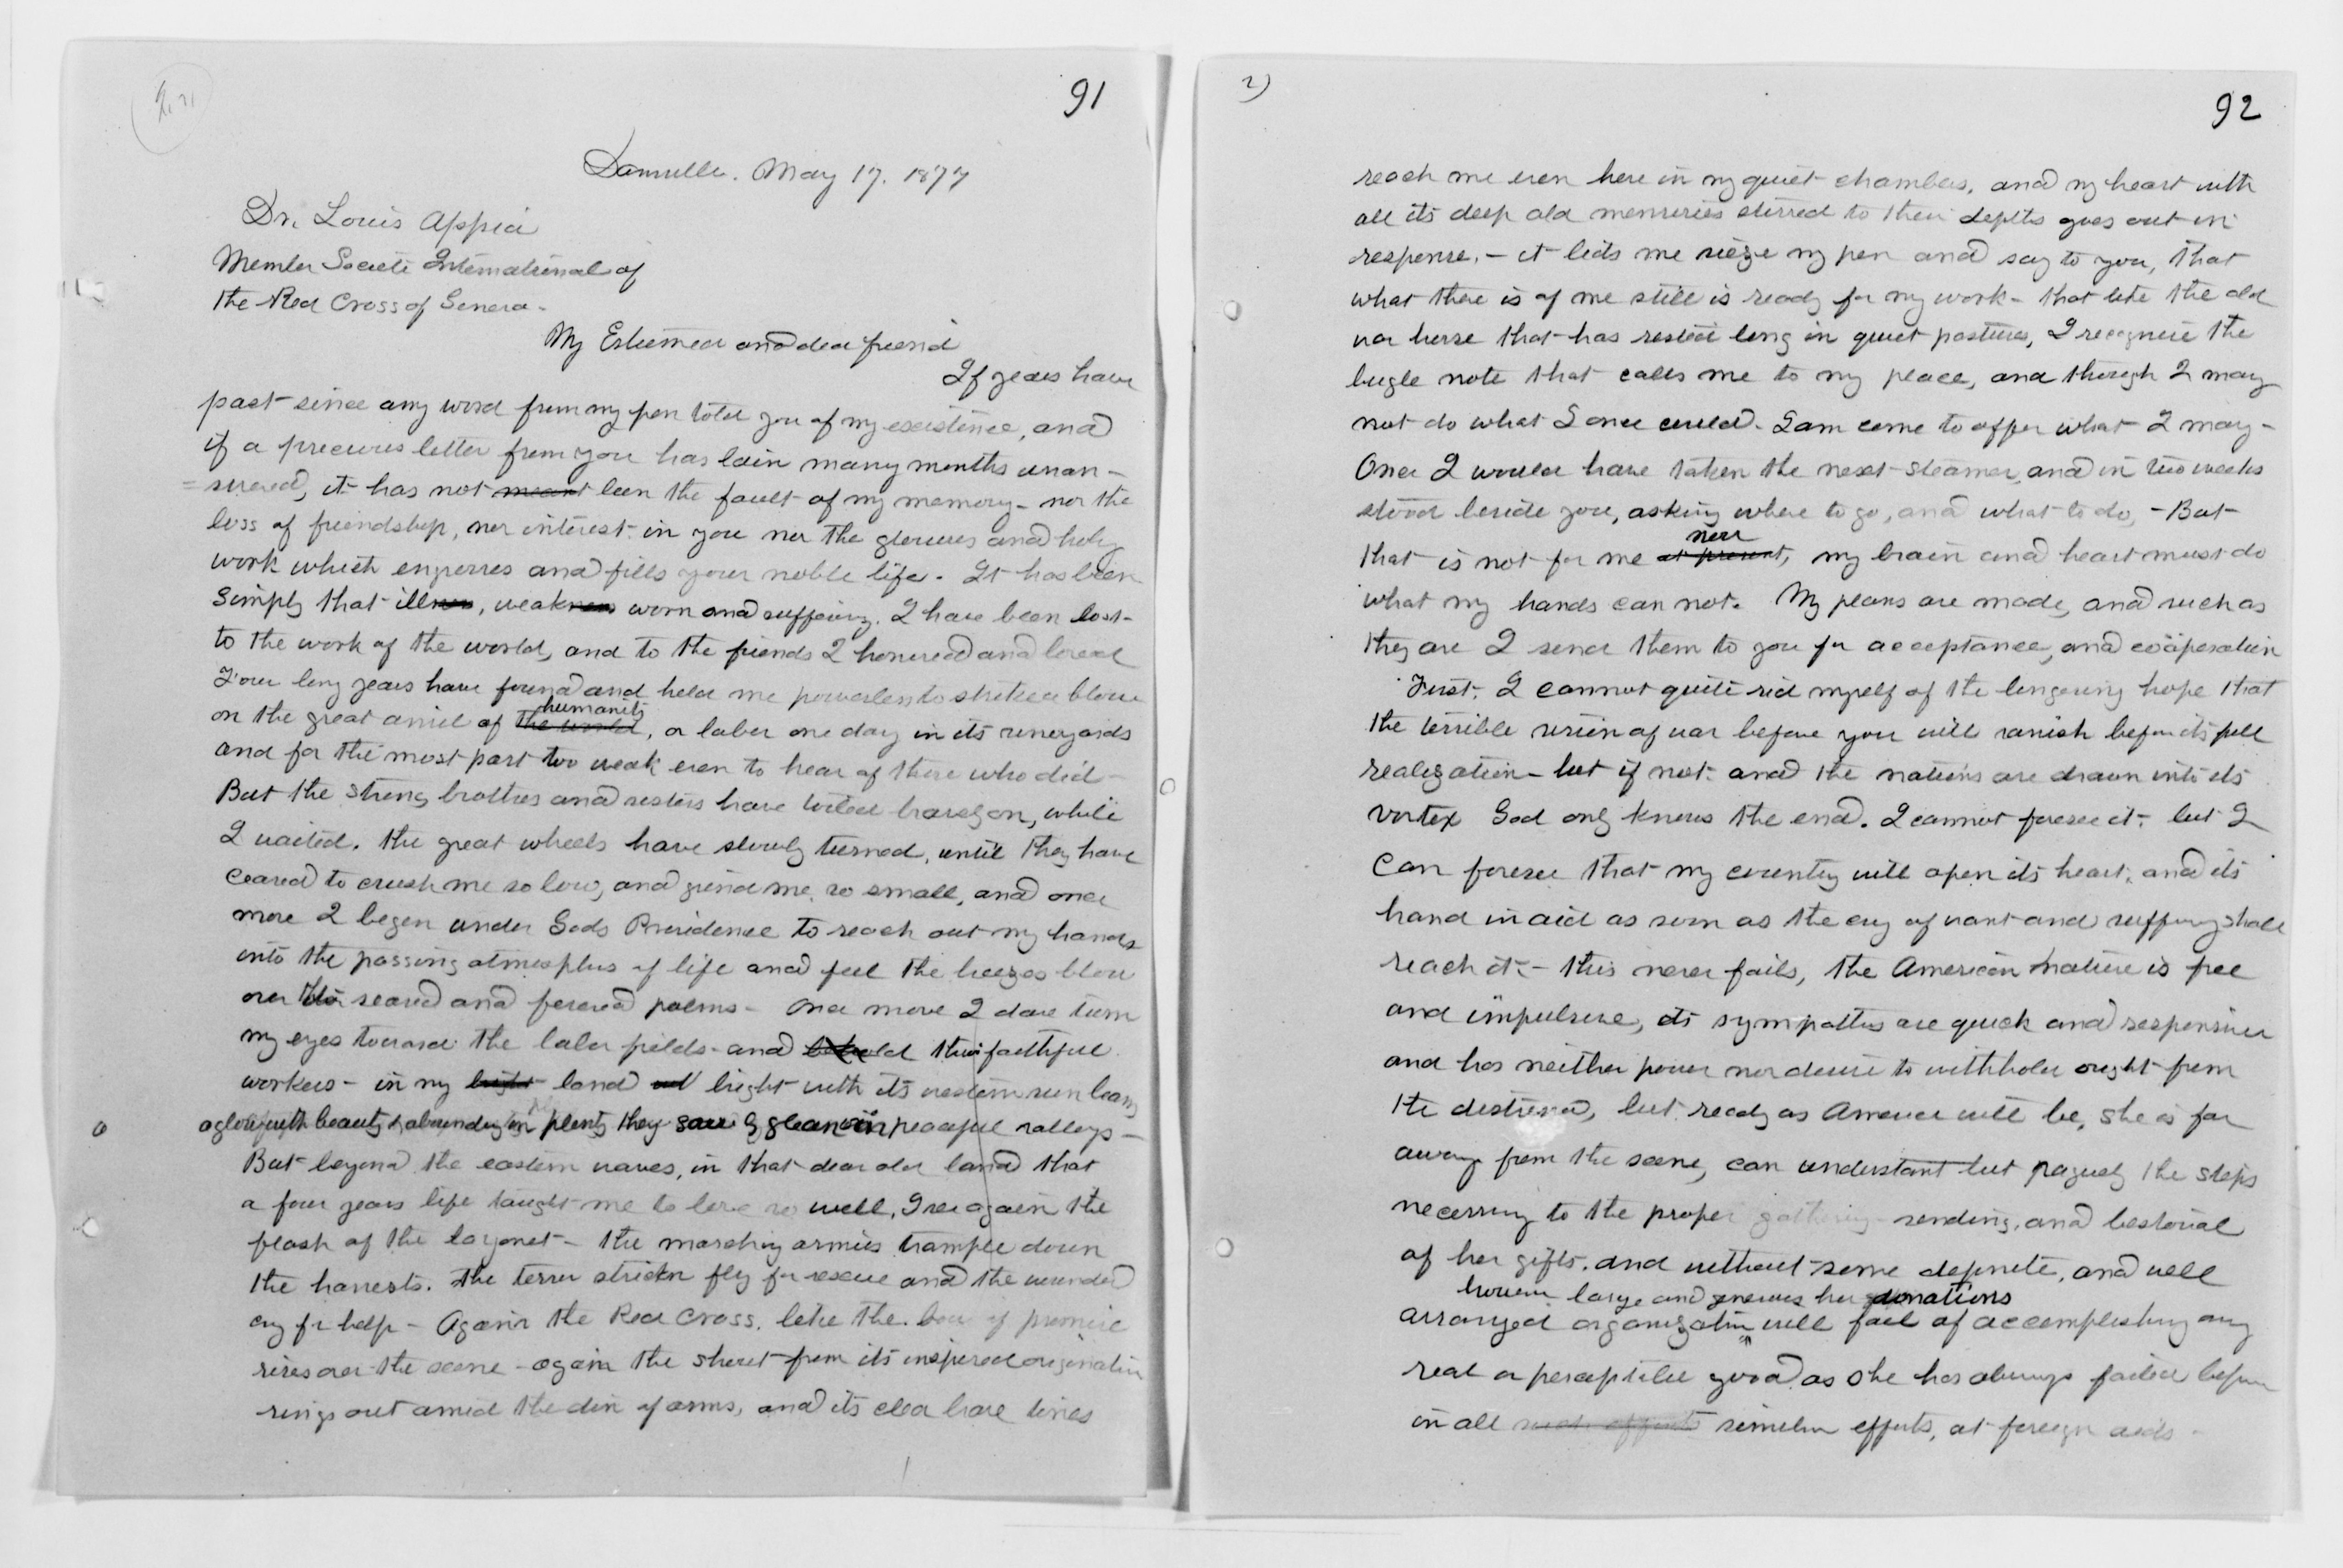 91
Dansville. May 17. 1877
Dr. Louis Appia
Member Societé International of
the Red Cross of Geneva -
My Esteemed and dear friend
If years have
past since any word from my pen told you of my existence, and
if a precious letter from you has lain many months unan-
=swered, it has not meant been the fault of my memory - nor the
loss of friendship, nor interest in you nor the glorious and holy
work which engrosses and fills your noble life. It has been
simply that illness, weakness worn and suffering. I have been lost
to the work of the world, and to the friends I honored and loved
Four long years have found and held me powerless to strike a blow
humanity
on the great anvil of the world, or labor one day in its vineyards
and for the most part too weak even to hear of those who did -
But the strong brothers and sisters have toiled bravely on, while
I waited. the great wheels have slowly turned, until they have
ceased to crush me so low, and grind me so small, and once
more I begin under Gods Providence to reach out my hands
into the passing atmosphere of life and feel the breezes blow
over their seared and fevered palms - Once more I dare turn
my eyes toward the labor fields and behold their faithful
workers - in my bright land bright with its western sun beams
aglow with beauty & abounding in plenty they sow & glean in peaceful valleys -
But beyond the eastern waves, in that dear old land that
a four years life taught me to love so well, I see again the
flash of the bayonet - the marching armies trample down
the harvests. the terror stricken fly for rescue and the wounded
cry for help - Again the Red Cross. like the bow of promise
rises over the scene - again the shout from its inspired originator
rings out amid the din of arms, and its clear brave tones
2)
92
reach me even here in my quiet chambers, and my heart with
all its deep old memories stirred to their depths goes out in
response. - it bids me sieze my pen and say to you, that
what there is of me still is ready for my work - that like the old
war horse that has rested long in quiet pastures, I recognize the
bugle note that calls me to my place, and though I may
not do what I once could. I am come to offer what I may -
Once I would have taken the next steamer, and in two weeks
stood beside you, asking where to go, and what to do, - But
now
that is not for me at present, my brain and heart must do
what my hands can not. My plans are made, and such as
they are I send them to you for acceptance, and coöperation
First. I cannot quite rid myself of the lingering hope that
the terrible vision of war before you will vanish before its full
realization - but if not and the nations are drawn into its
vortex God only knows the end. I cannot foresee it - but I
can foresee that my country will open its heart, and its
hand in aid as soon as the cry of want and suffering shall
reach it - this never fails, the American nature is free
and impulsive, its sympathies are quick and responsive
and has neither power nor desire to withhold ought from
the distressed, but ready as America will be, she is far
away from the scene, can understant but vaguely the steps
necessary to the proper gathering - sending, and bestowal
of her gifts. and without some definite, and well
however large and generous her donations
arranged organization will fail of accomplishing any
real or perceptible good as she has always failed before
in all such efforts similar efforts, at foreign aids -